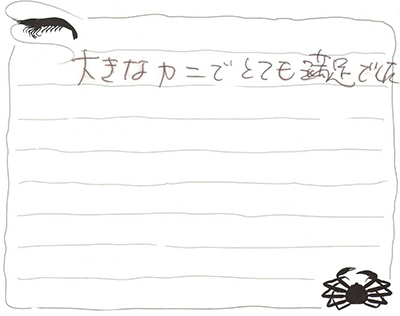 大きなカニでとても満足でした